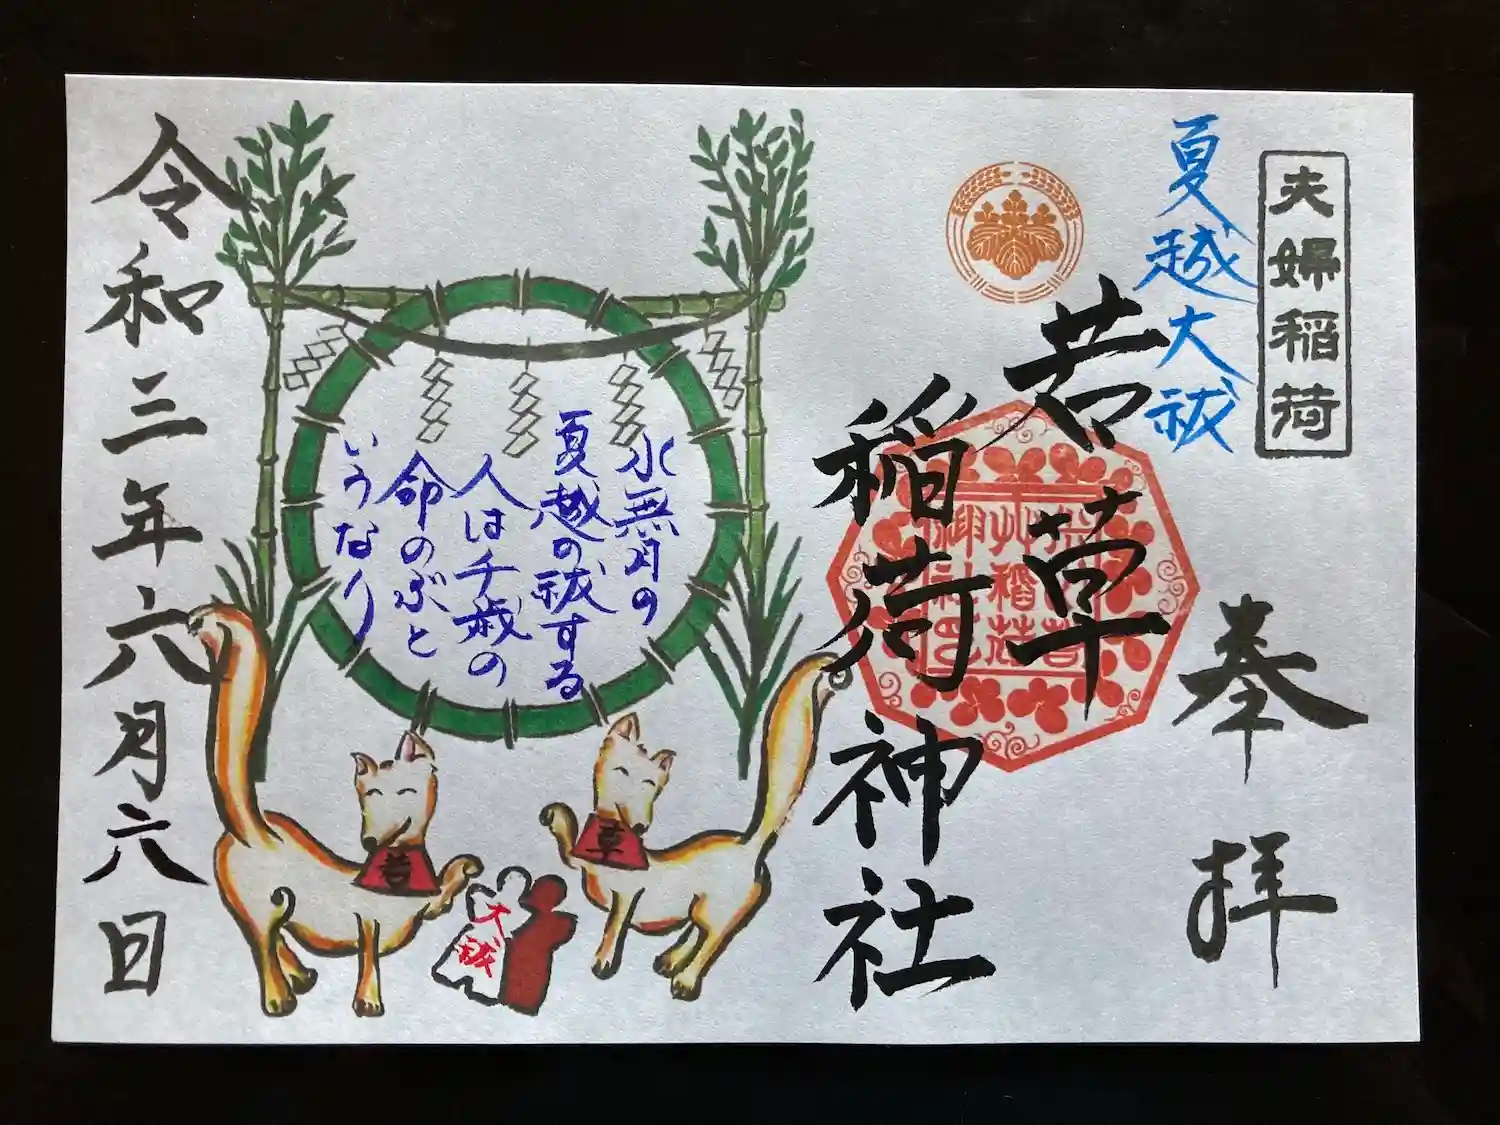 夫婦稲荷
夏越大祓
奉拝
若草
稲荷神社
水無月の
夏越の祓する
人は千歳の
命のぶと
いうなり
草
若
大祓
令和三年六月六日